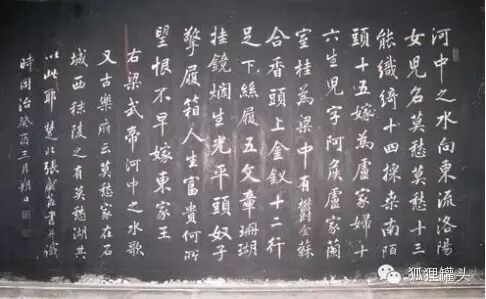 河中之水向東流洛陽
女兒名莫愁莫愁十三
能織綺十四採桑南陌
頭十五嫁爲盧家婦十
六生兒字阿矦盧家蘭
室桂爲梁中有鬱金蘇
合香頭上金釵十二行
足下絲履五文章珊瑚
挂鏡爛生光平頭奴子
擎履箱人生富貴何所
望恨不早嫁東家王
右梁武帝河中之水歌
又古樂府云莫愁家在石
城西秣陵之有莫愁湖其
以此耶楚北張書并識
時同治癸酉三月朔日
狐狸罐头